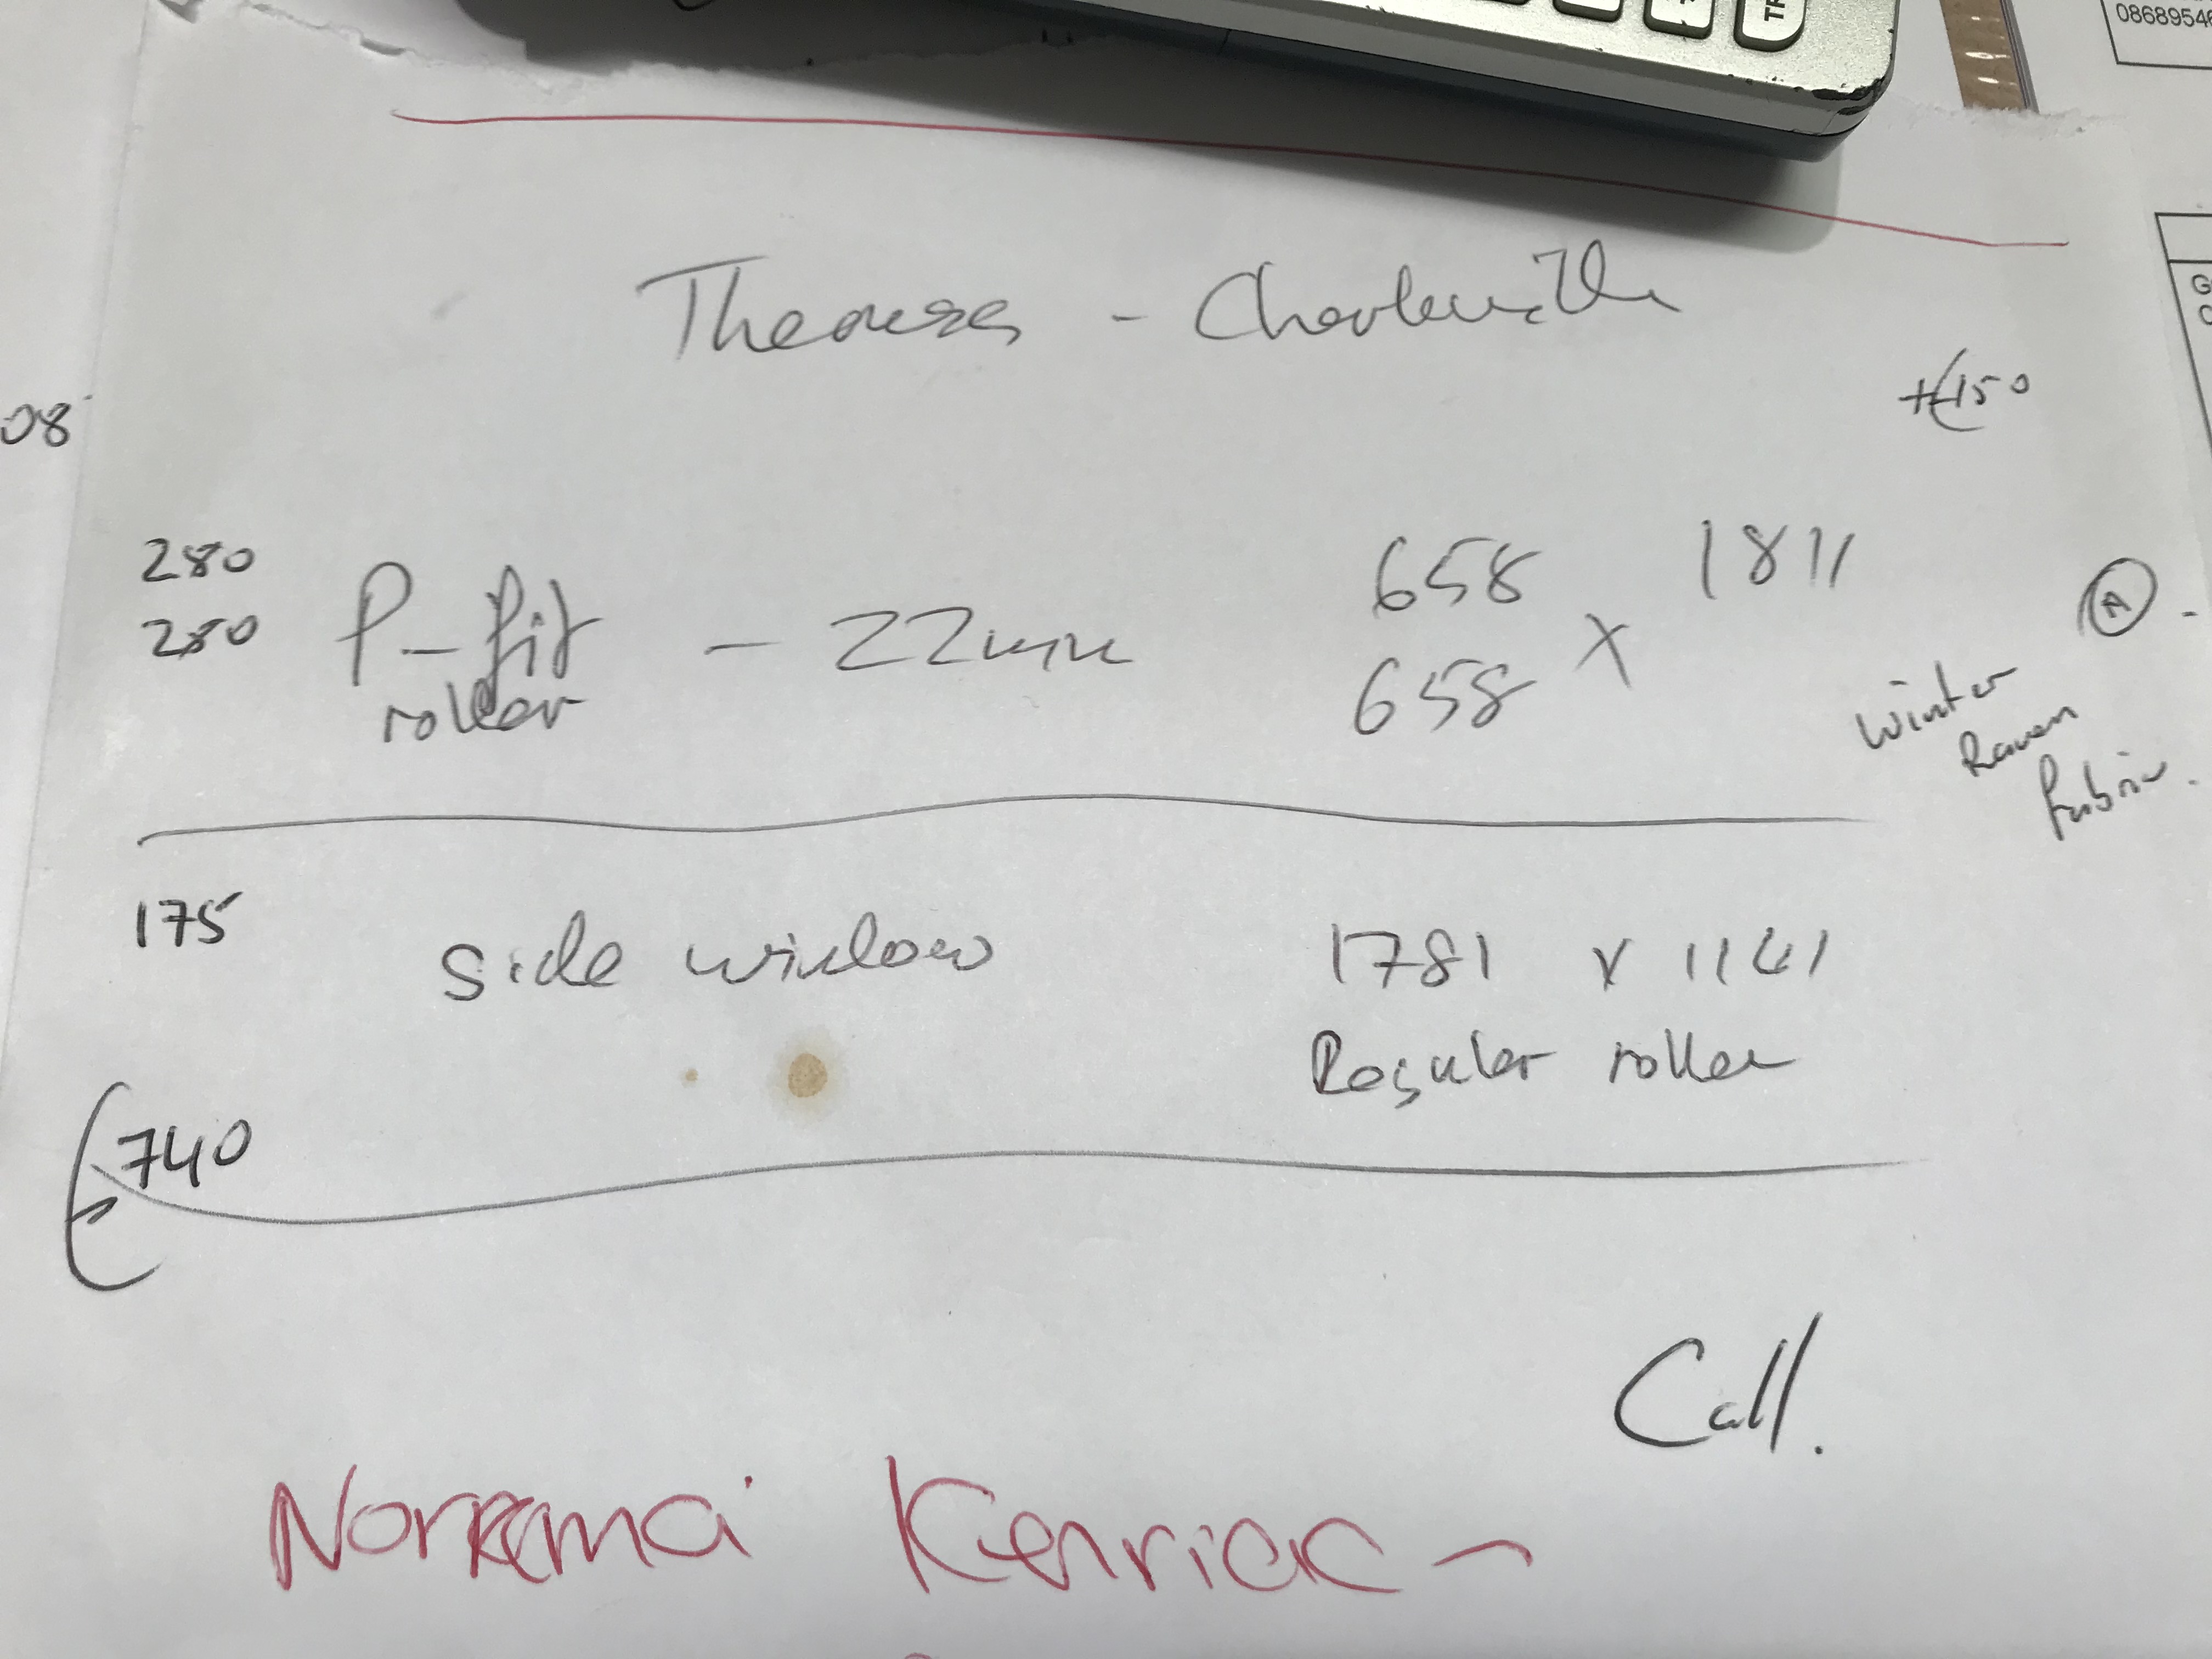 0868954
Theresa - Charleville
08
+€150
280
280
P-fit - 22mm
roller
658 X 1811
658
A
Winter
Raven
fabric.
175
Side window 1781 x 1141
Regular roller
€740
Call.